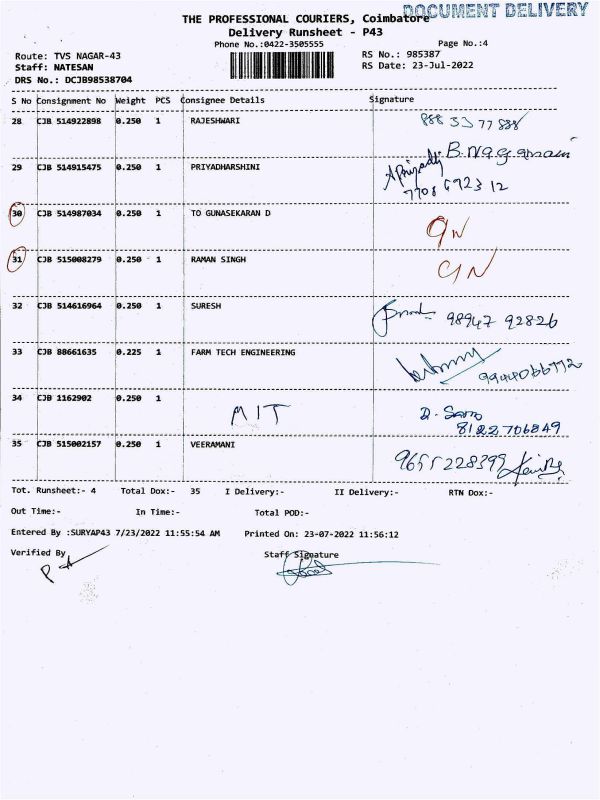 DOCUMENT DELIVERY
THE PROFESSIONAL COURIERS, Coimbatore
Delivery Runsheet - P43
Phone No.:0422-3505555 Page No.:4
Route: TVS NAGAR-43 RS No.: 985387
Staff: NATESAN RS Date: 23-Jul-2022
DRS No.: DCJB98538704
S No Consignment No Weight PCS Consignee Details Signature
28 CJB 514922898 0.250 1 RAJESHWARI
29 CJB 514915475 0.250 1 PRIYADHARSHINI
30 CJB 514987034 0.250 1 TO GUNASEKARAN D
31 CJB 515008279 0.250 1 RAMAN SINGH
32 CJB 514616964 0.250 1 SURESH 98947 92826
33 CJB 88661635 0.225 1 FARM TECH ENGINEERING
34 CJB 1162902 0.250 1 MIT
8122706849
35 CJB 515002157 0.250 1 VEERAMANI 9655228399
Tot. Runsheet:- 4 Total Dox:- 35 I Delivery:- II Delivery:- RTN Dox:-
Out Time:- In Time:- Total POD:-
Entered By :SURYAP43 7/23/2022 11:55:54 AM Printed On: 23-07-2022 11:56:12
Verified By Staff Signature